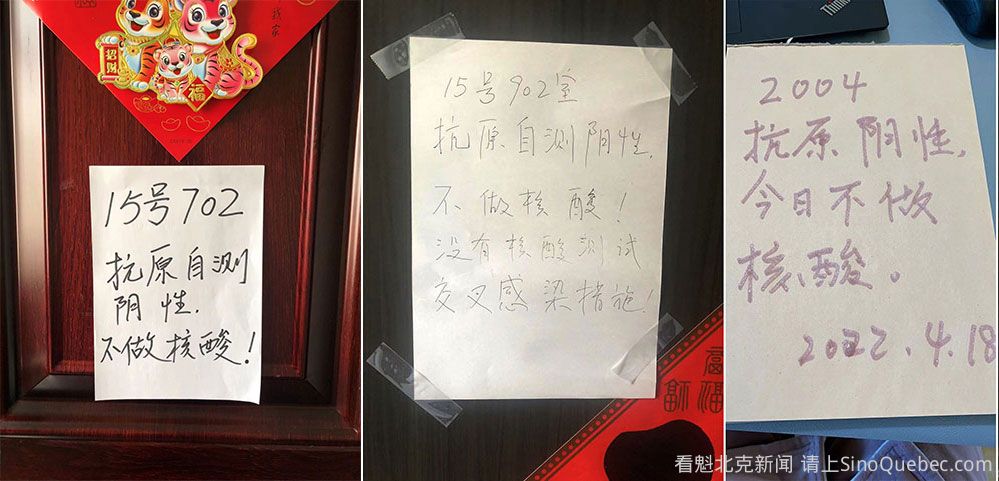 我家
招财
福
15号702
抗原自测
阴性.
不做核酸!
15号902室
抗原自测阴性.
不做核酸!
没有核酸测试
交叉感染措施!
福
Think
2004
抗原阴性,
今日不做
核酸。
2022.4.18
看魁北克新闻 请上SinoQuebec.com